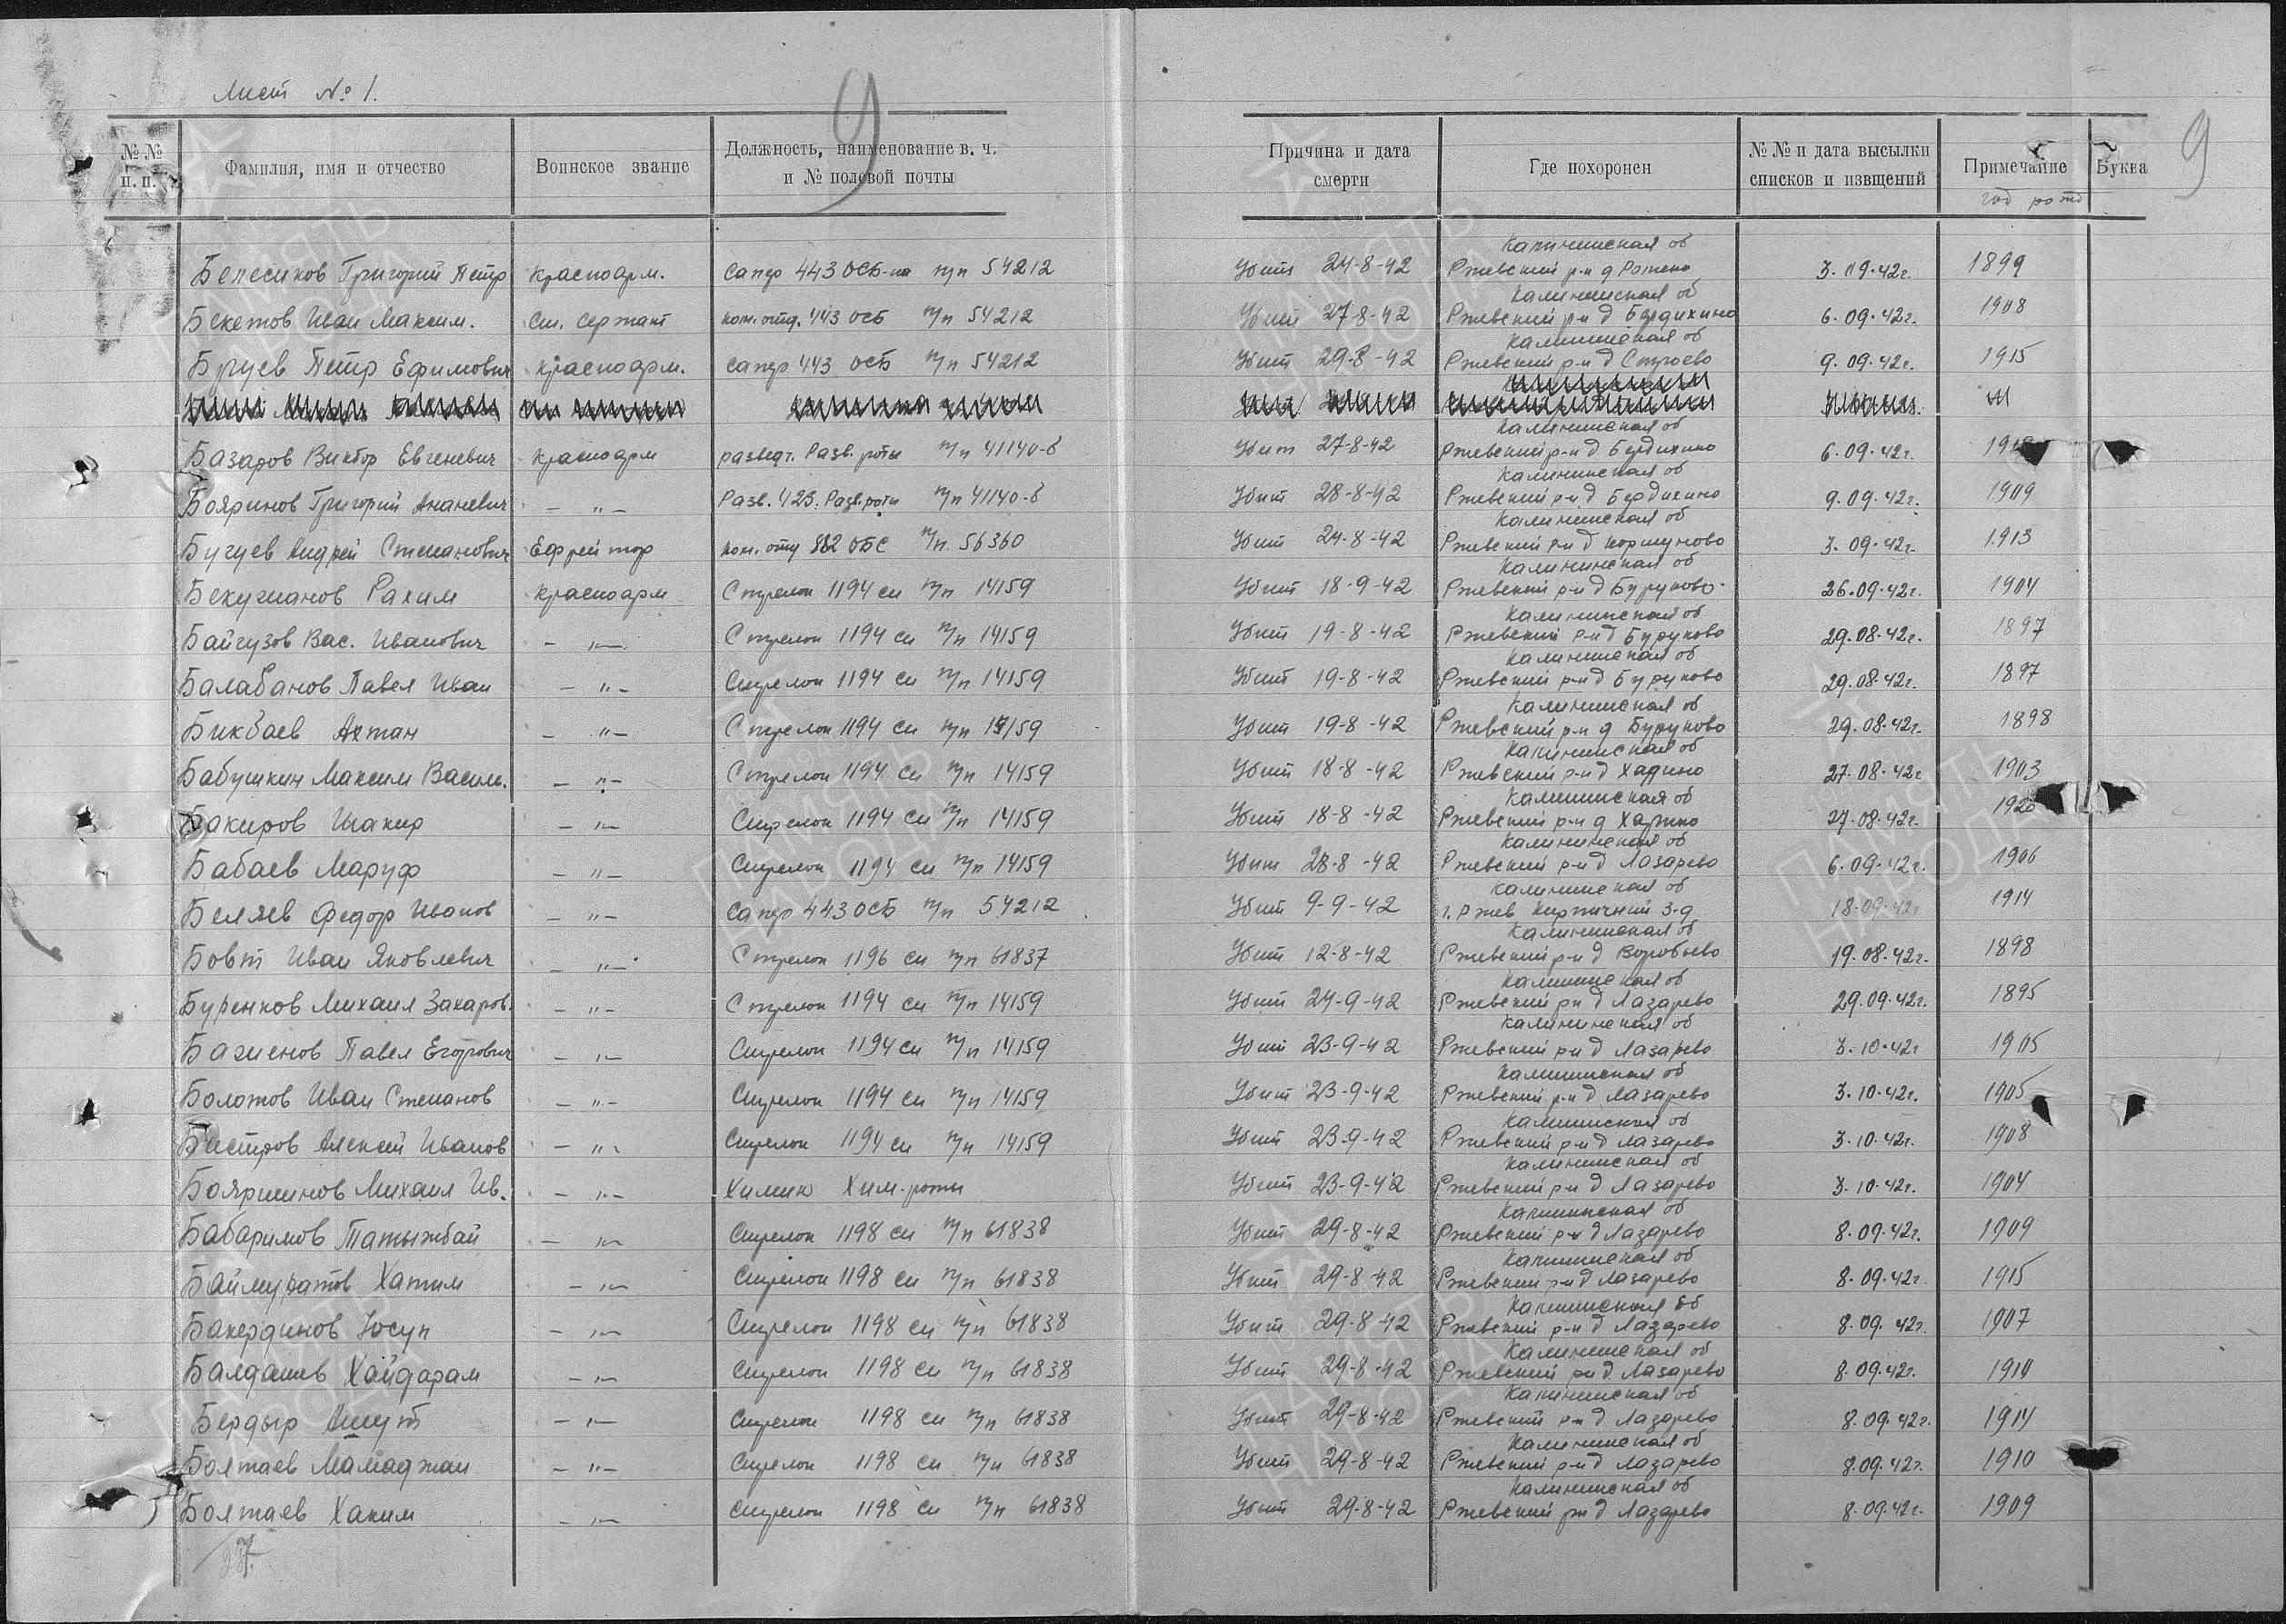 Лист № 1.
9
9
№№ п. п. Фамилия, имя и отчество Воинское звание Должность, наименование в. ч. и № полевой почты Причина и дата смерти Где похоронен №№ и дата высылки списков и извщений Примечание год рожд Буква
Калининская об
Белесиков Григорий Петр Красноарм. Сапер 443 ОСБ-на п/п 54212 Убит 24-8-42 Ржевский р-н д Рожено 3.09.42г. 1899
Калининская об
Бекетов Иван Максим. Ст. сержант ком. отд. 443 ОСБ п/п 54212 Убит 27-8-42 Ржевский р-н д Бердихино 6.09.42г. 1908
Калининская об
Бруев Петр Ефимович Красноарм. сапер 443 ОСБ п/п 54212 Убит 29-8-42 Ржевский р-н д 9.09.42г. 1915
Калининская об
Базаров Виктор Евгеневич Красноарм разведч. Разв. роты п/п 41140-б Убит 27-8-42 Ржевский р-н д Бердихино 6.09.42г.
Калининская об
Бояринов Григорий Ананевич - " - Разв. 423. Разв. роты п/п 41140-б Убит 28-8-42 Ржевский р-н д Бердихино 9.09.42г. 1909
Калининская об
Бугуев Андрей Степанович Ефрейтор ком. отд 882 ОБС п/п 56360 Убит 24-8-42 Ржевский р-н д Коршуново 3.09.42г. 1913
Калининская об
Бекугианов Рахим Красноарм Стрелок 1194 сп п/п 14159 Убит 18-9-42 Ржевский р-н д Буруково 26.09.42г. 1904
Калининская об
Байгузов Вас. Иванович - " - Стрелок 1194 сп п/п 14159 Убит 19-8-42 Ржевский р-н д Буруково 29.08.42г. 1897
Калининская об
Балабанов Павел Иван - " - Стрелок 1194 сп п/п 14159 Убит 19-8-42 Ржевский р-н д Буруково 29.08.42г. 1897
Калининская об
Бикбаев Ахтан - " - Стрелок 1194 сп п/п 14159 Убит 19-8-42 Ржевский р-н д Буруково 29.08.42г. 1898
Калининская об
Бабушкин Максим Василь. - " - Стрелок 1194 сп п/п 14159 Убит 18-8-42 Ржевский р-н д Харино 27.08.42г 1903
Калининская об
Бакиров Шакир - " - Стрелок 1194 сп п/п 14159 Убит 18-8-42 Ржевский р-н д Харино 27.08.42г. 1920
Калининская об
Бабаев Маруф - " - Стрелок 1194 сп п/п 14159 Убит 28-8-42 Ржевский р-н д Лазарево 6.09.42г. 1906
Калининская об
Беляев Федор Иванов - " - Сапер 443 ОСБ п/п 54212 Убит 9-9-42 г. Ржев Кирпичний З-д 18.09.42г 1914
Калининская об
Бовт Иван Яковлевич - " - Стрелок 1196 сп п/п 61837 Убит 12-8-42 Ржевский р-н д Воробьево 19.08.42г. 1898
Калининская об
Буренков Михаил Захаров. - " - Стрелок 1194 сп п/п 14159 Убит 24-9-42 Ржевский р-н д Лазарево 29.09.42г. 1895
Калининская об
Баженов Павел Егорович - " - Стрелок 1194 сп п/п 14159 Убит 23-9-42 Ржевский р-н д Лазарево 3.10.42г 1905
Калининская об
Болотов Иван Степанов - " - Стрелок 1194 сп п/п 14159 Убит 23-9-42 Ржевский р-н д Лазарево 3.10.42г. 1905
Калининская об
Бистров Алексей Иванов - " - Стрелок 1194 сп п/п 14159 Убит 23-9-42 Ржевский р-н д Лазарево 3.10.42г. 1908
Калининская об
Бояршинов Михаил Ив. - " - Химик Хим-роты Убит 23-9-42 Ржевский р-н д Лазарево 3.10.42г. 1904
Калининская об
Бабаримов Татыжбай - " - Стрелок 1198 сп п/п 61838 Убит 29-8-42 Ржевский р-н д Лазарево 8.09.42г. 1909
Калининская об
Баймуратов Хатим - " - Стрелок 1198 сп п/п 61838 Убит 29-8-42 Ржевский р-н д Лазарево 8.09.42г. 1915
Калининская об
Бакердинов Юсуп - " - Стрелок 1198 сп п/п 61838 Убит 29-8-42 Ржевский р-н д Лазарево 8.09.42г. 1907
Калининская об
Балдашев Хайдарам - " - Стрелок 1198 сп п/п 61838 Убит 29-8-42 Ржевский р-н д Лазарево 8.09.42г. 1910
Калининская об
Бердыр Ашут - " - Стрелок 1198 сп п/п 61838 Убит 29-8-42 Ржевский р-н д Лазарево 8.09.42г. 1914
Калининская об
Болтаев Мамаджан - " - Стрелок 1198 сп п/п 61838 Убит 29-8-42 Ржевский р-н д Лазарево 8.09.42г. 1910
Калининская об
Болтаев Хаким - " - Стрелок 1198 сп п/п 61838 Убит 29-8-42 Ржевский р-н д Лазарево 8.09.42г. 1909
ПАМЯТЬ НАРОДА